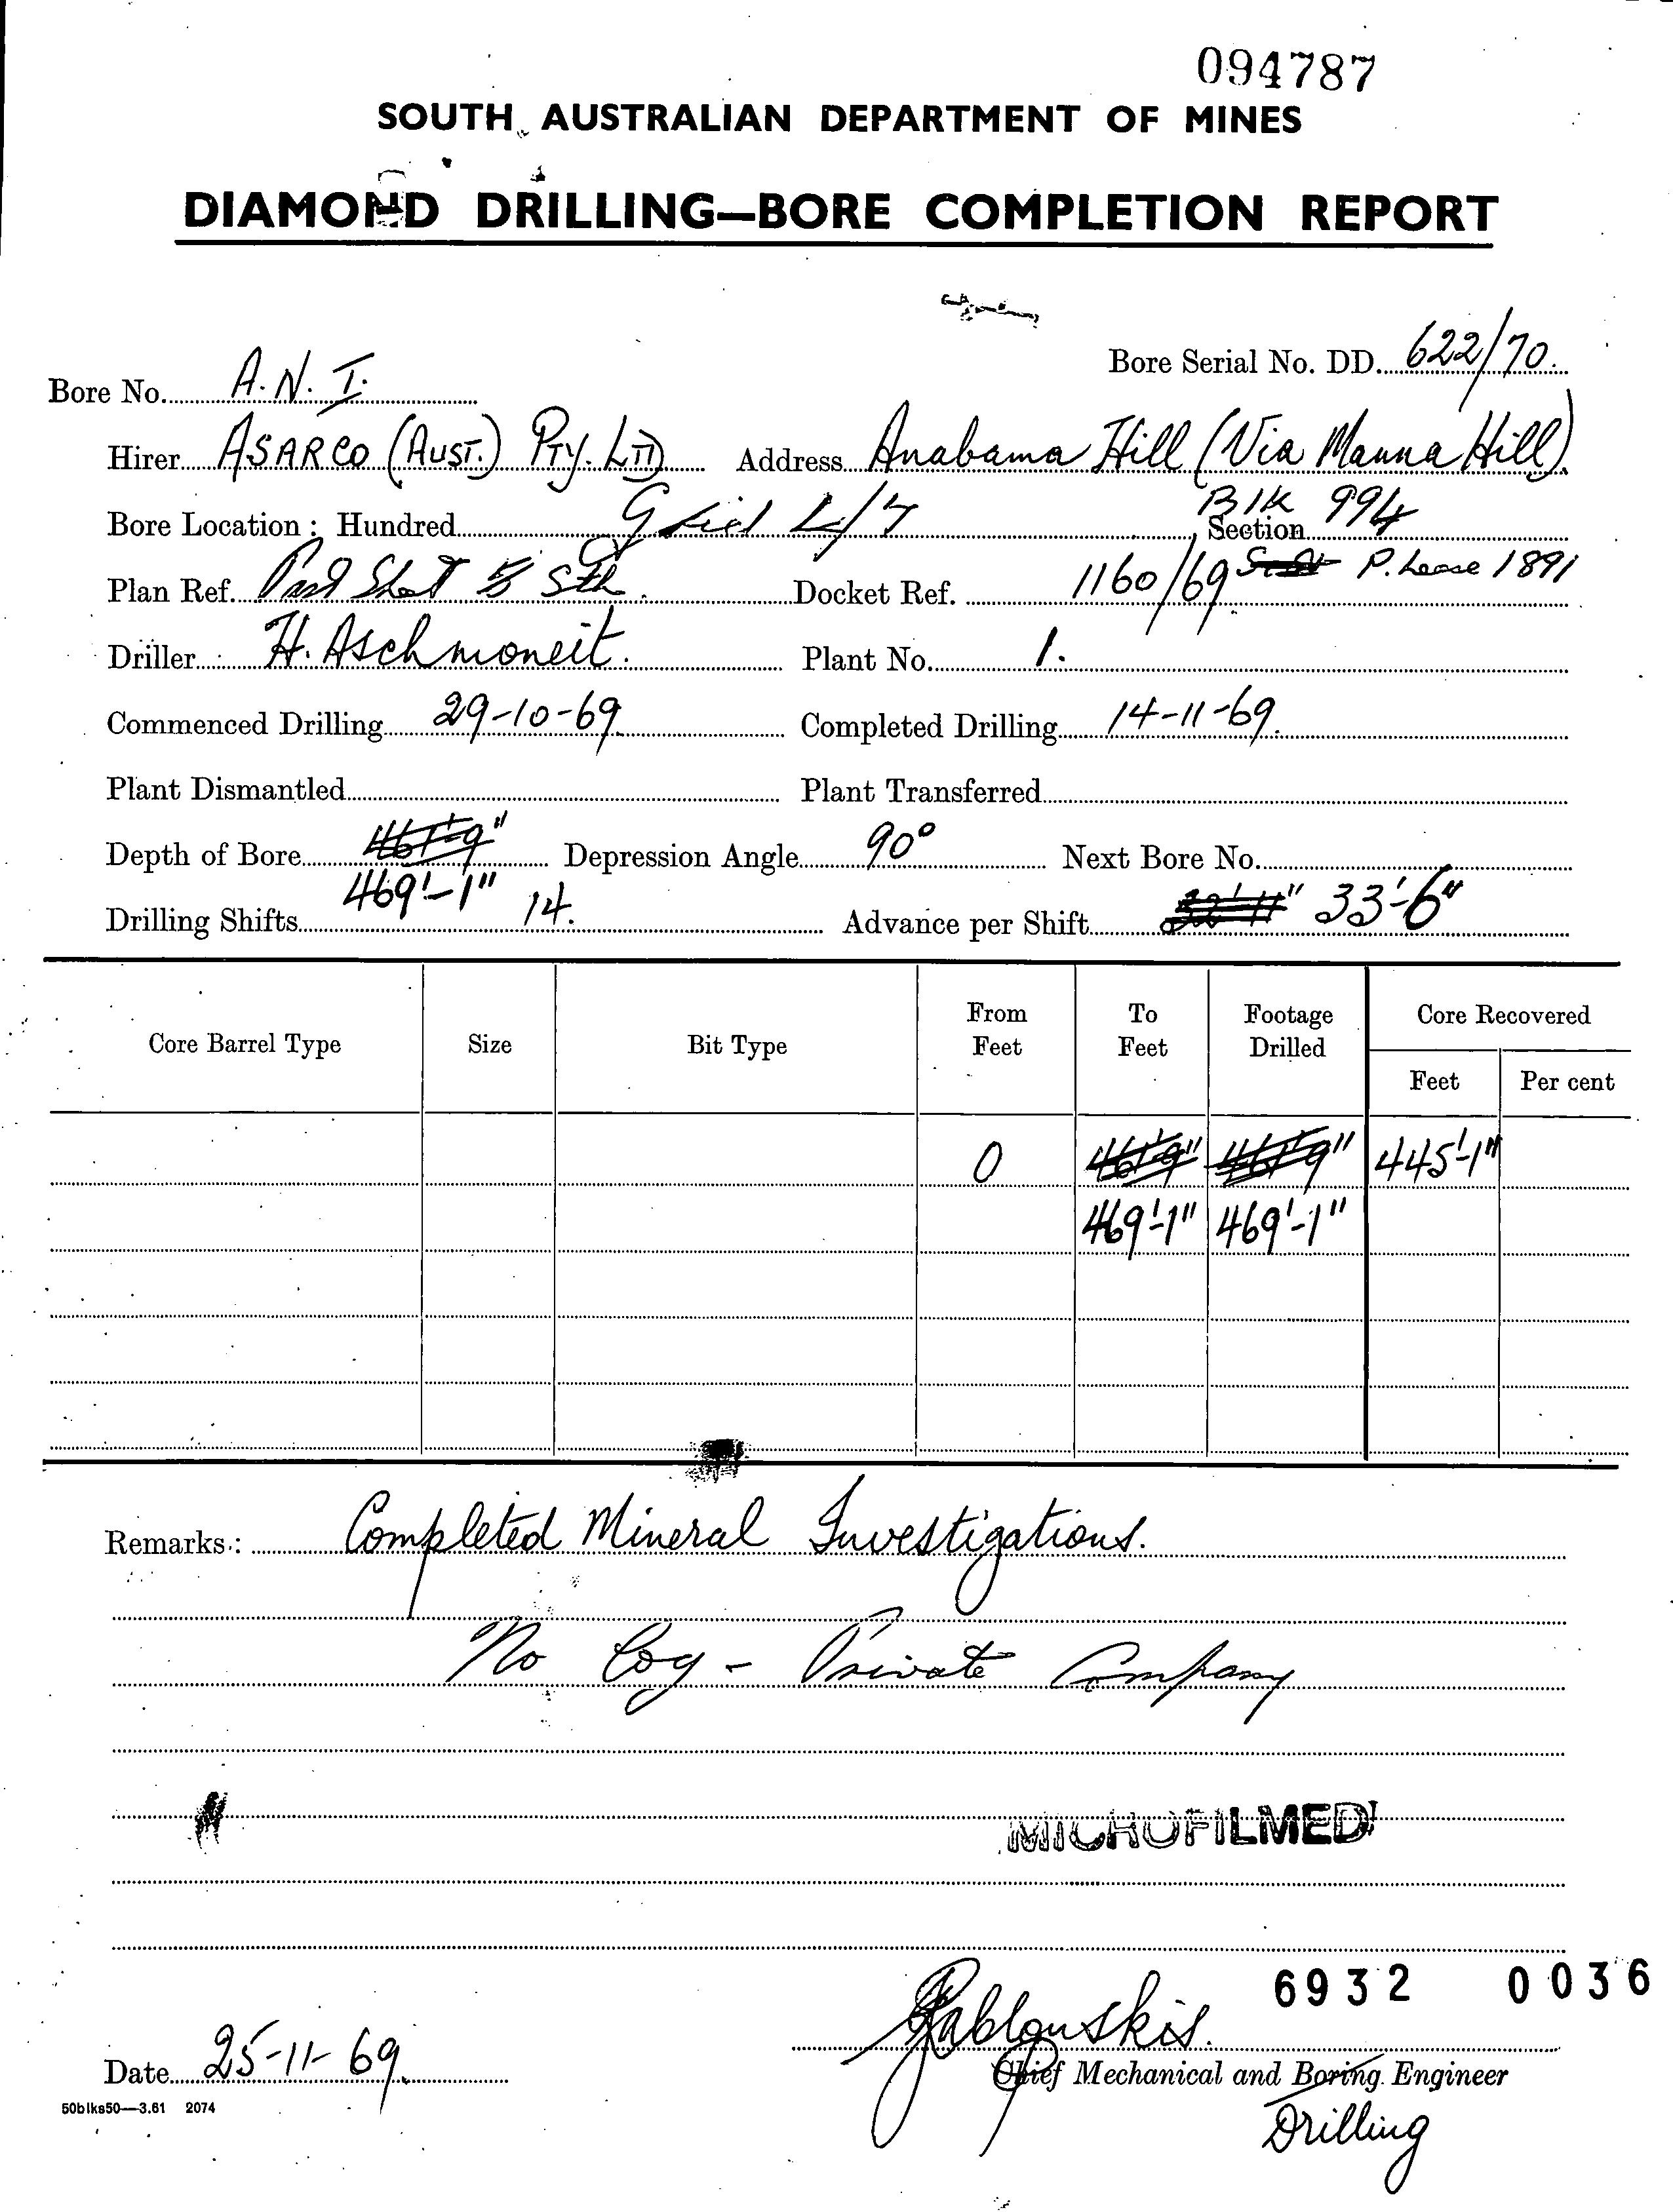 094787
SOUTH AUSTRALIAN DEPARTMENT OF MINES
DIAMOND DRILLING—BORE COMPLETION REPORT
Bore Serial No. DD. 622/70.
Bore No. A.N. I.
Hirer ASARCO (AUST.) PTY. LTD Address Anabama Hill (Via Manna Hill).
Bore Location: Hundred Section BLK 994
Plan Ref. Docket Ref. 1160/69 P. Lease 1891
Driller H. Aschmoneit. Plant No. 1.
Commenced Drilling 29-10-69. Completed Drilling 14-11-69.
Plant Dismantled Plant Transferred
Depth of Bore 461'-9" Depression Angle 90° Next Bore No.
469'-1"
Drilling Shifts 14. Advance per Shift 32'-11" 33'-6"
Core Barrel Type Size Bit Type From Feet To Feet Footage Drilled Core Recovered
Feet Per cent
0 461'-9" 461'-9" 445'-1"
469'-1" 469'-1"
Remarks: Completed Mineral Investigations.
No Log - Private Company
MICROFILMED
6932 0036
Jablonskis.
Date 25-11-69. Chief Mechanical and Boring Engineer
50blks50—3.61 2074
Drilling